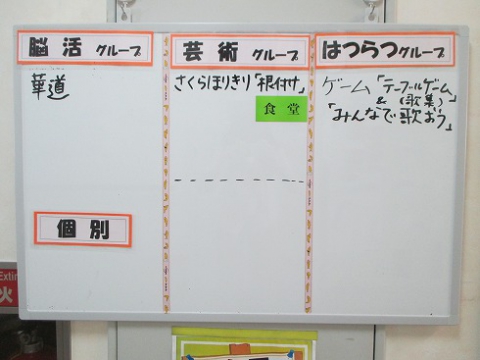 脳活グループ
華道
個別
芸術グループ
さくらほりきり「根付け」
食堂
はつらつグループ
ゲーム「テーブルゲーム」
&(歌集)
「みんなで歌おう」
Exti
火